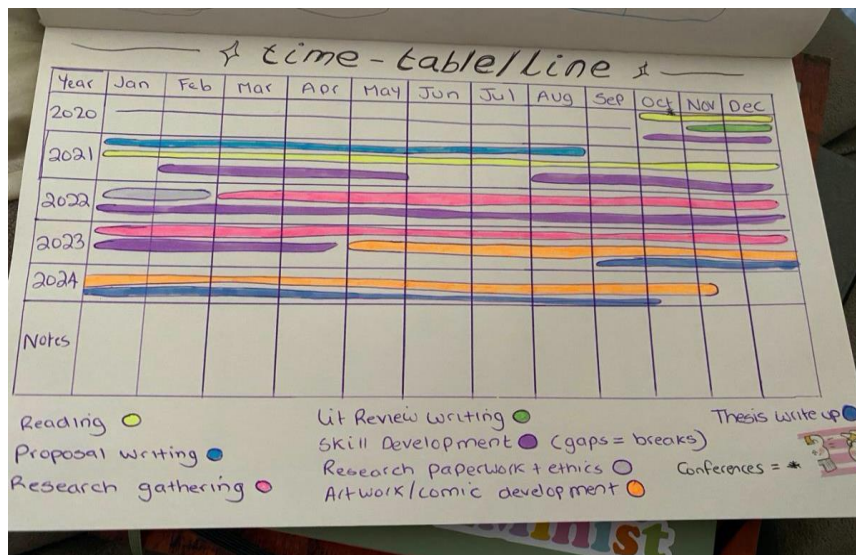 time-table/line
Year Jan Feb Mar Apr May Jun Jul Aug Sep Oct Nov Dec
2020
2021
2022
2023
2024
Notes
Reading
Proposal writing
Research gathering
Lit Review writing
Skill Development (gaps = breaks)
Research paperwork + ethics
Artwork/comic development
Thesis write up
Conferences = *